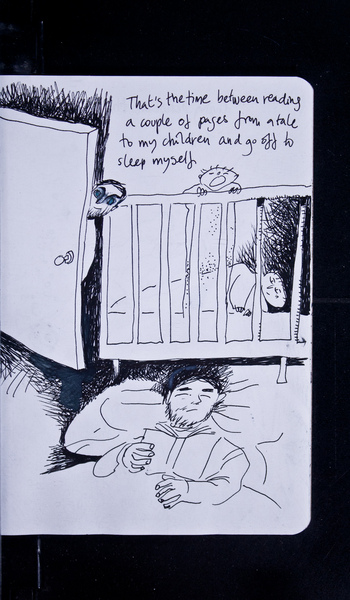 That's the time between reading
a couple of pages from a tale
to my children and go off to
sleep myself.